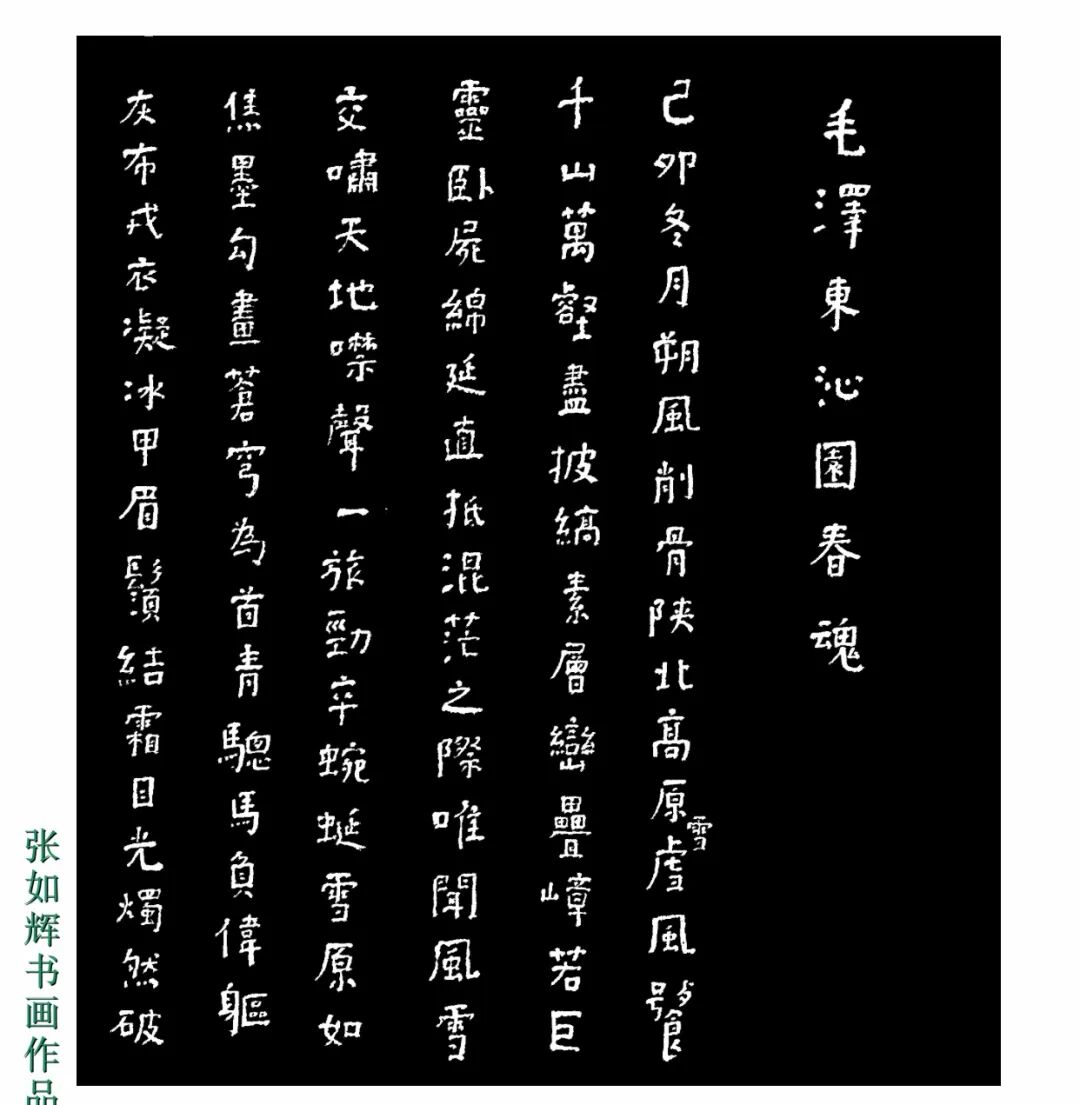 毛澤東沁園春魂
己卯冬月朔風削骨陕北高原雪虐風饕
千山萬壑盡披縞素層巒疊嶂若巨
靈卧屍綿延直抵混茫之際唯聞風雪
交嘯天地噤聲一旅勁卒蜿蜒雪原如
焦墨勾畫蒼穹為首青驄馬負偉軀
灰布戎衣凝冰甲眉鬚結霜目光燭然破
张如辉书画作品